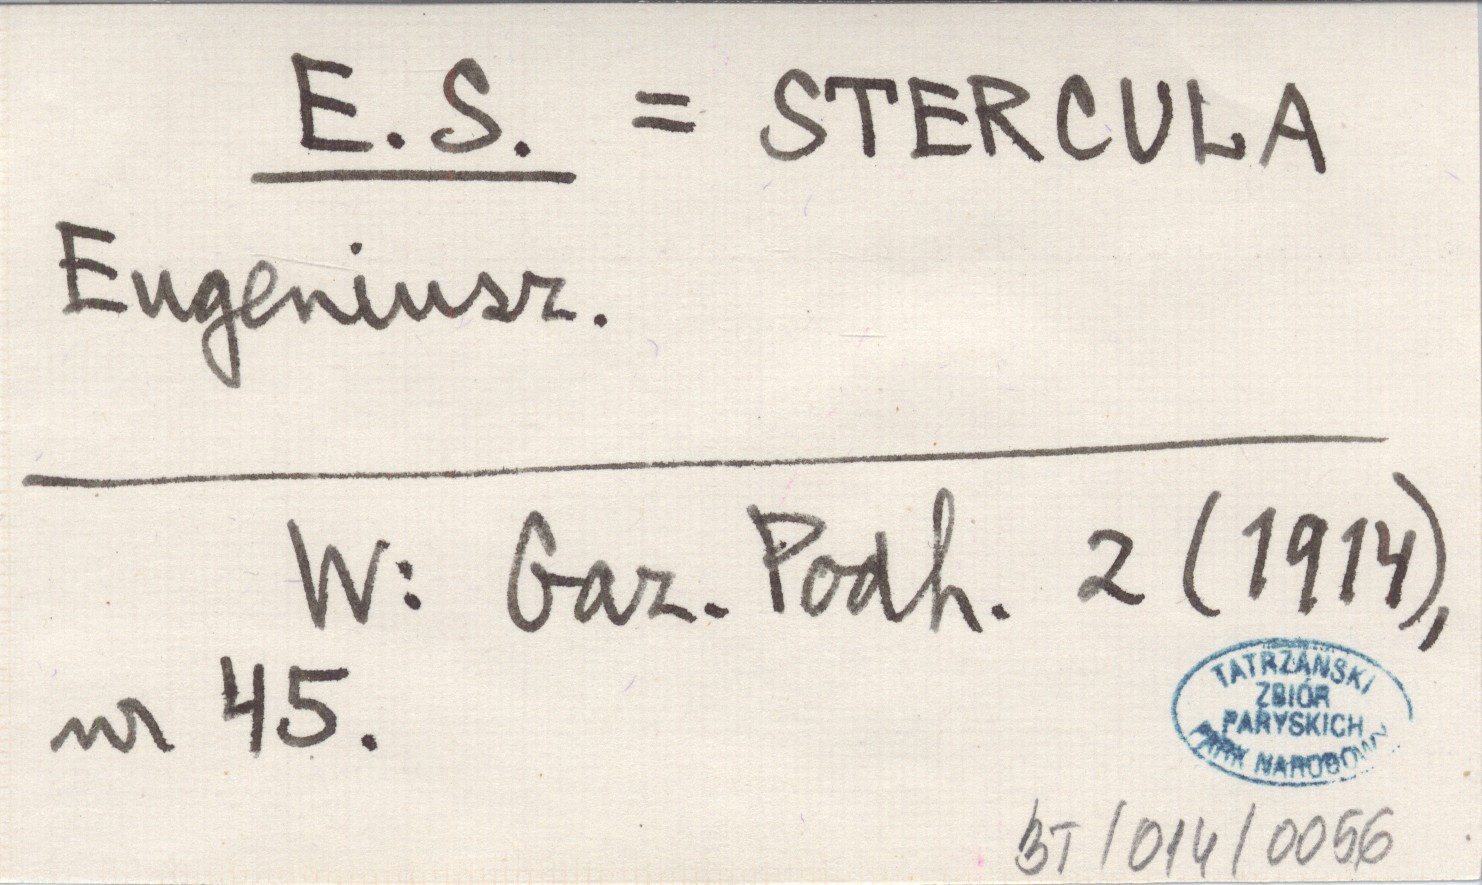 E.S. = STERCULA
Eugeniusz.
W: Gaz. Podh. 2 (1914),
nr 45.
TATRZAŃSKI
ZBIÓR
PARYSKICH
PARK NARODOWY
BT/014/0056